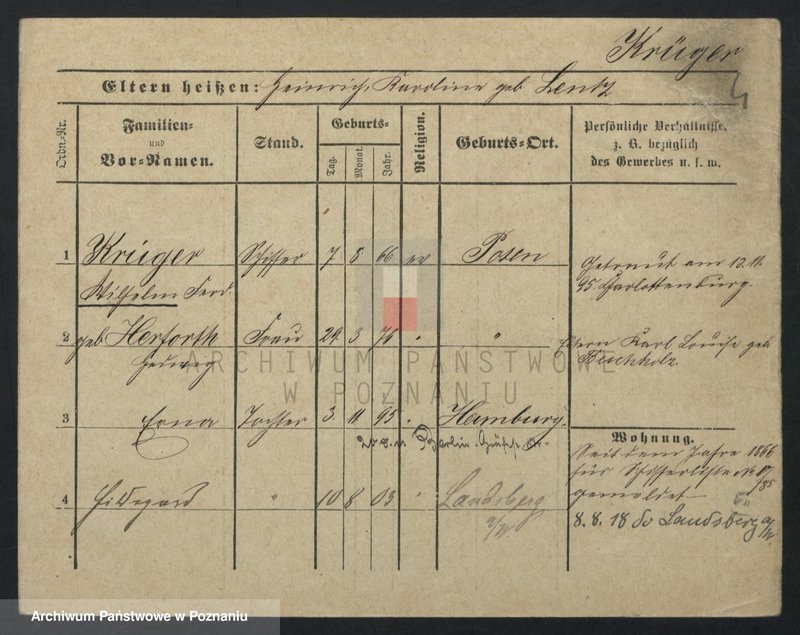 Krüger
Eltern heißen: Heinrich, Karoline geb Lentz
Ordn.-Nr.
Familien-
und
Vor-Namen.
Stand.
Geburts-
Tag.
Monat.
Jahr.
Religion.
Geburts-Ort.
Persönliche Verhältnisse,
z. B. bezüglich
des Gewerbes u. s. w.
1 Krüger Schiffer 7 8 66 ev Posen
Wilhelm Ferd.
Getraut am 13.11.
95. Charlottenburg.
2 geb Herforth Frau 29 3 76 " "
Hedwig
Eltern Karl Louise geb
Buchholz.
3 Erna Tochter 3. 11 95 " Hamburg.
Berlin
Wohnung.
Seit dem Jahre 1866
für Schifferliste
gemeldet
4 Hildegard " 10 8 03 " Landsberg
a/W
8. 8. 18 Landsberg a/W
ARCHIWUM PAŃSTWOWE
W POZNANIU
Archiwum Państwowe w Poznaniu